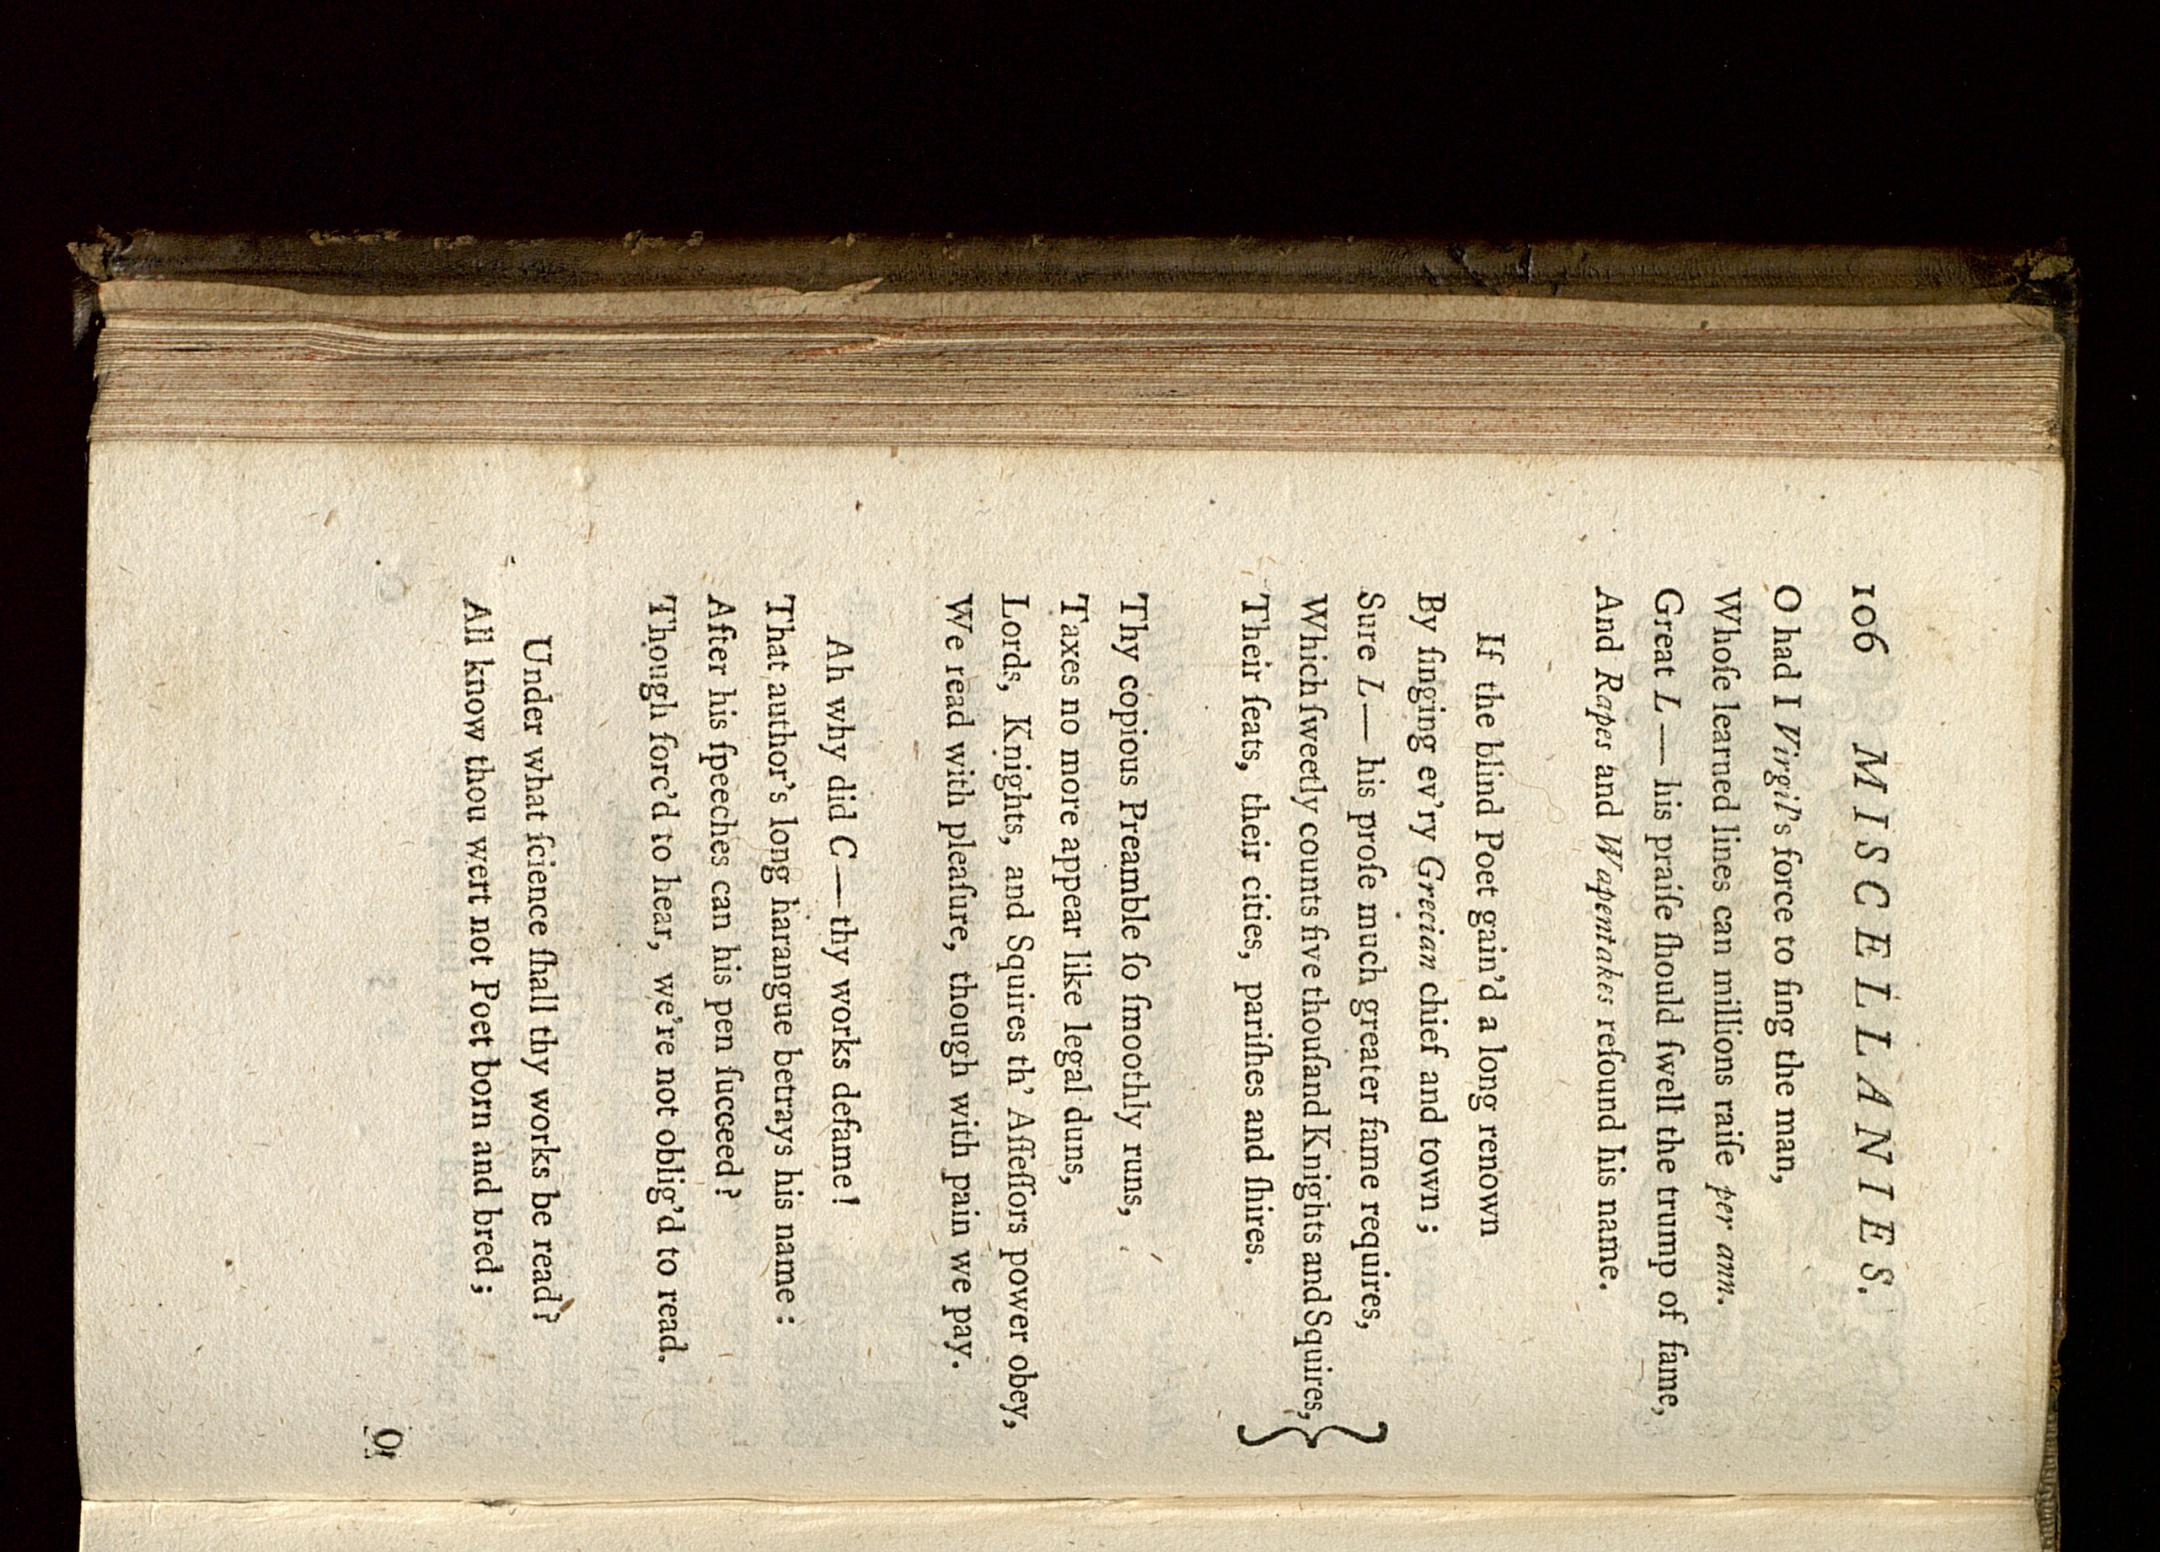 106 MISCELLANIES.
O had I Virgil's force to ſing the man,
Whoſe learned lines can millions raiſe per ann.
Great L— his praiſe ſhould ſwell the trump of fame,
And Rapes and Wapentakes reſound his name.
If the blind Poet gain'd a long renown
By ſinging ev'ry Grecian chief and town;
Sure L— his proſe much greater fame requires,
Which ſweetly counts five thouſand Knights and Squires,
Their ſeats, their cities, pariſhes and ſhires.
Thy copious Preamble ſo ſmoothly runs,
Taxes no more appear like legal duns,
Lords, Knights, and Squires th' Aſſeſſors power obey,
We read with pleaſure, though with pain we pay.
Ah why did C— thy works defame!
That author's long harangue betrays his name:
After his ſpeeches can his pen ſucceed?
Though forc'd to hear, we're not oblig'd to read.
Under what ſcience ſhall thy works be read?
All know thou wert not Poet born and bred;